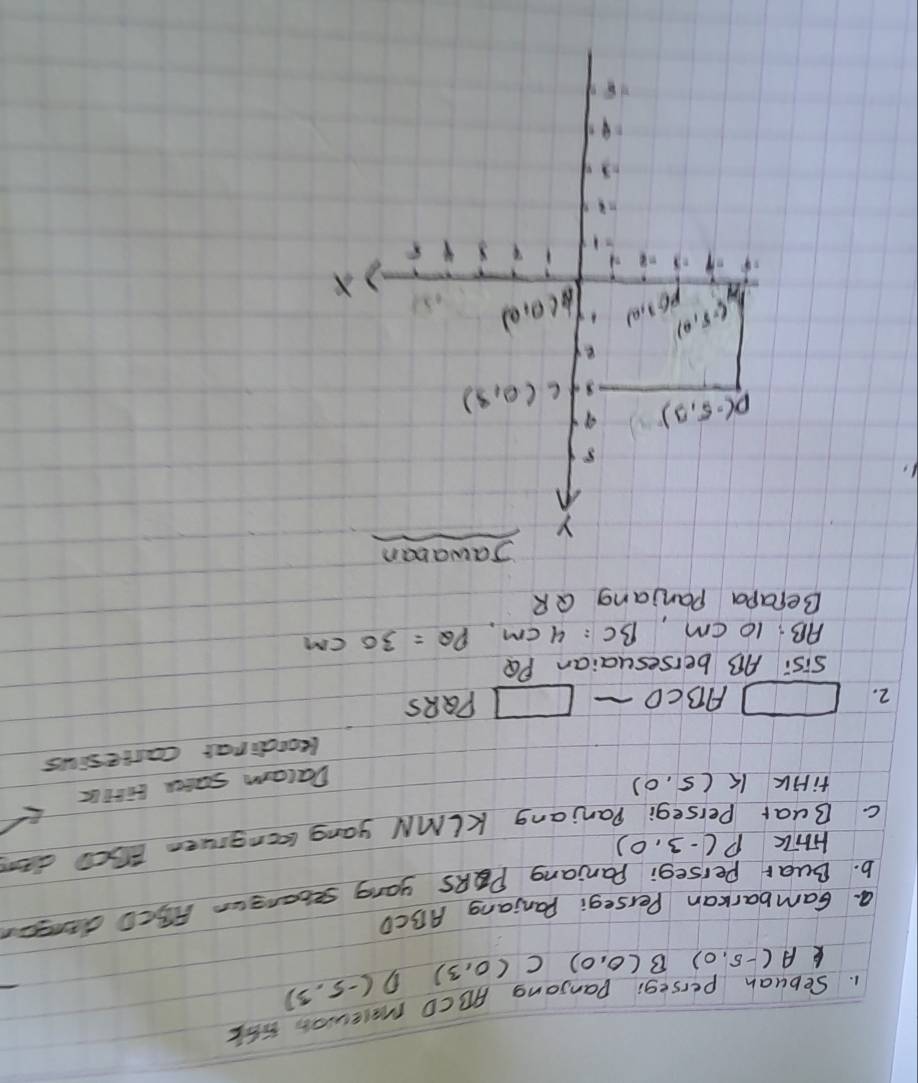 1. Sebuah persegi Panjang ABCD melewati titik
A (-5,0) B (0,0) C (0,3) D (-5,3)
a. Gambarkan Persegi Panjang ABCD
b. Buat Persegi Panjang PQRS yang sebangun ABCD dengan
titik P (-3,0)
c Buat Persegi Panjang KLMN yang kongruen ABCD
titik K (5,0)
Dalam satu titik
Kordinat Cartesius
2. ABCD ~ PQRS
sisi AB bersesuaian PQ
AB: 10 cm, BC: 4 cm, PQ = 30 cm
Berapa Panjang QR
Jawaban
1.
Y
5
4
D(-5,3) 3 C (0,3)
2
A(-5,0) P(-3,0) 1 B(0,0)
X
-5 -4 -3 -2 -1 1 2 3 4 5
-1
-2
-3
-4
-5